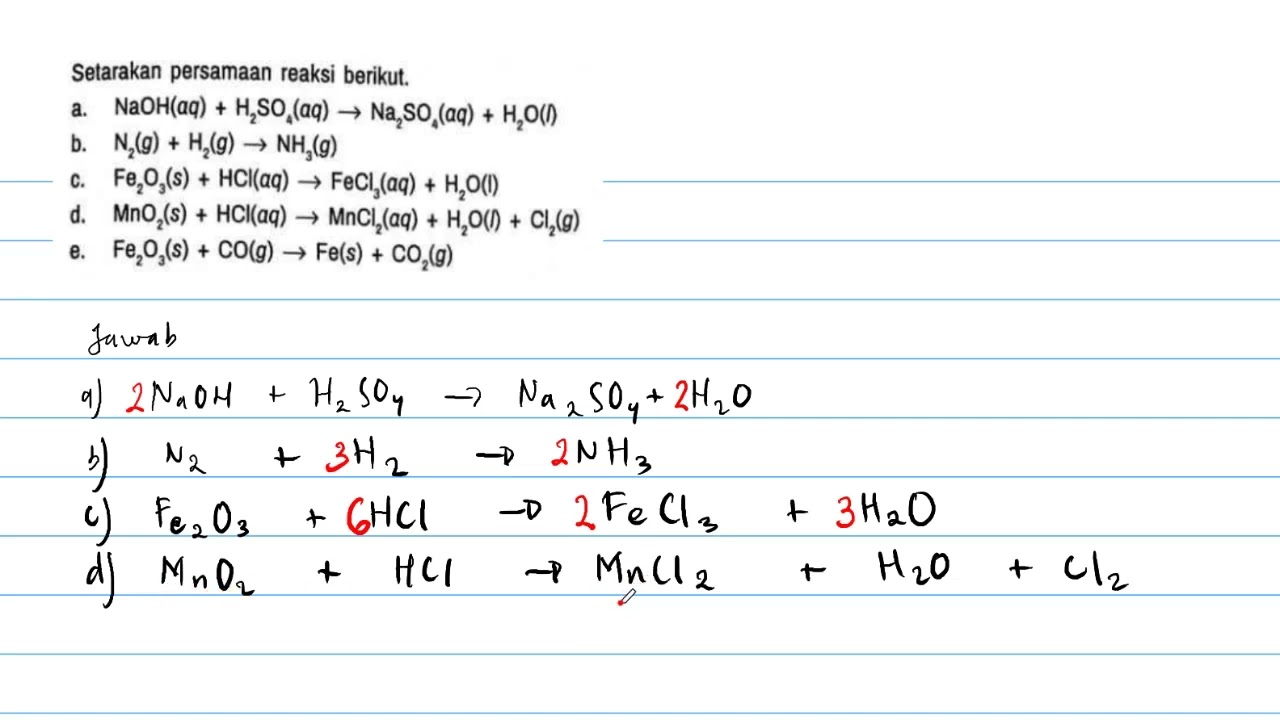 Setarakan persamaan reaksi berikut.
a. NaOH(aq) + H₂SO₄(aq) → Na₂SO₄(aq) + H₂O(l)
b. N₂(g) + H₂(g) → NH₃(g)
c. Fe₂O₃(s) + HCl(aq) → FeCl₃(aq) + H₂O(l)
d. MnO₂(s) + HCl(aq) → MnCl₂(aq) + H₂O(l) + Cl₂(g)
e. Fe₂O₃(s) + CO(g) → Fe(s) + CO₂(g)
Jawab
a) 2NaOH + H₂SO₄ → Na₂SO₄ + 2H₂O
b) N₂ + 3H₂ → 2NH₃
c) Fe₂O₃ + 6HCl → 2FeCl₃ + 3H₂O
d) MnO₂ + HCl → MnCl₂ + H₂O + Cl₂